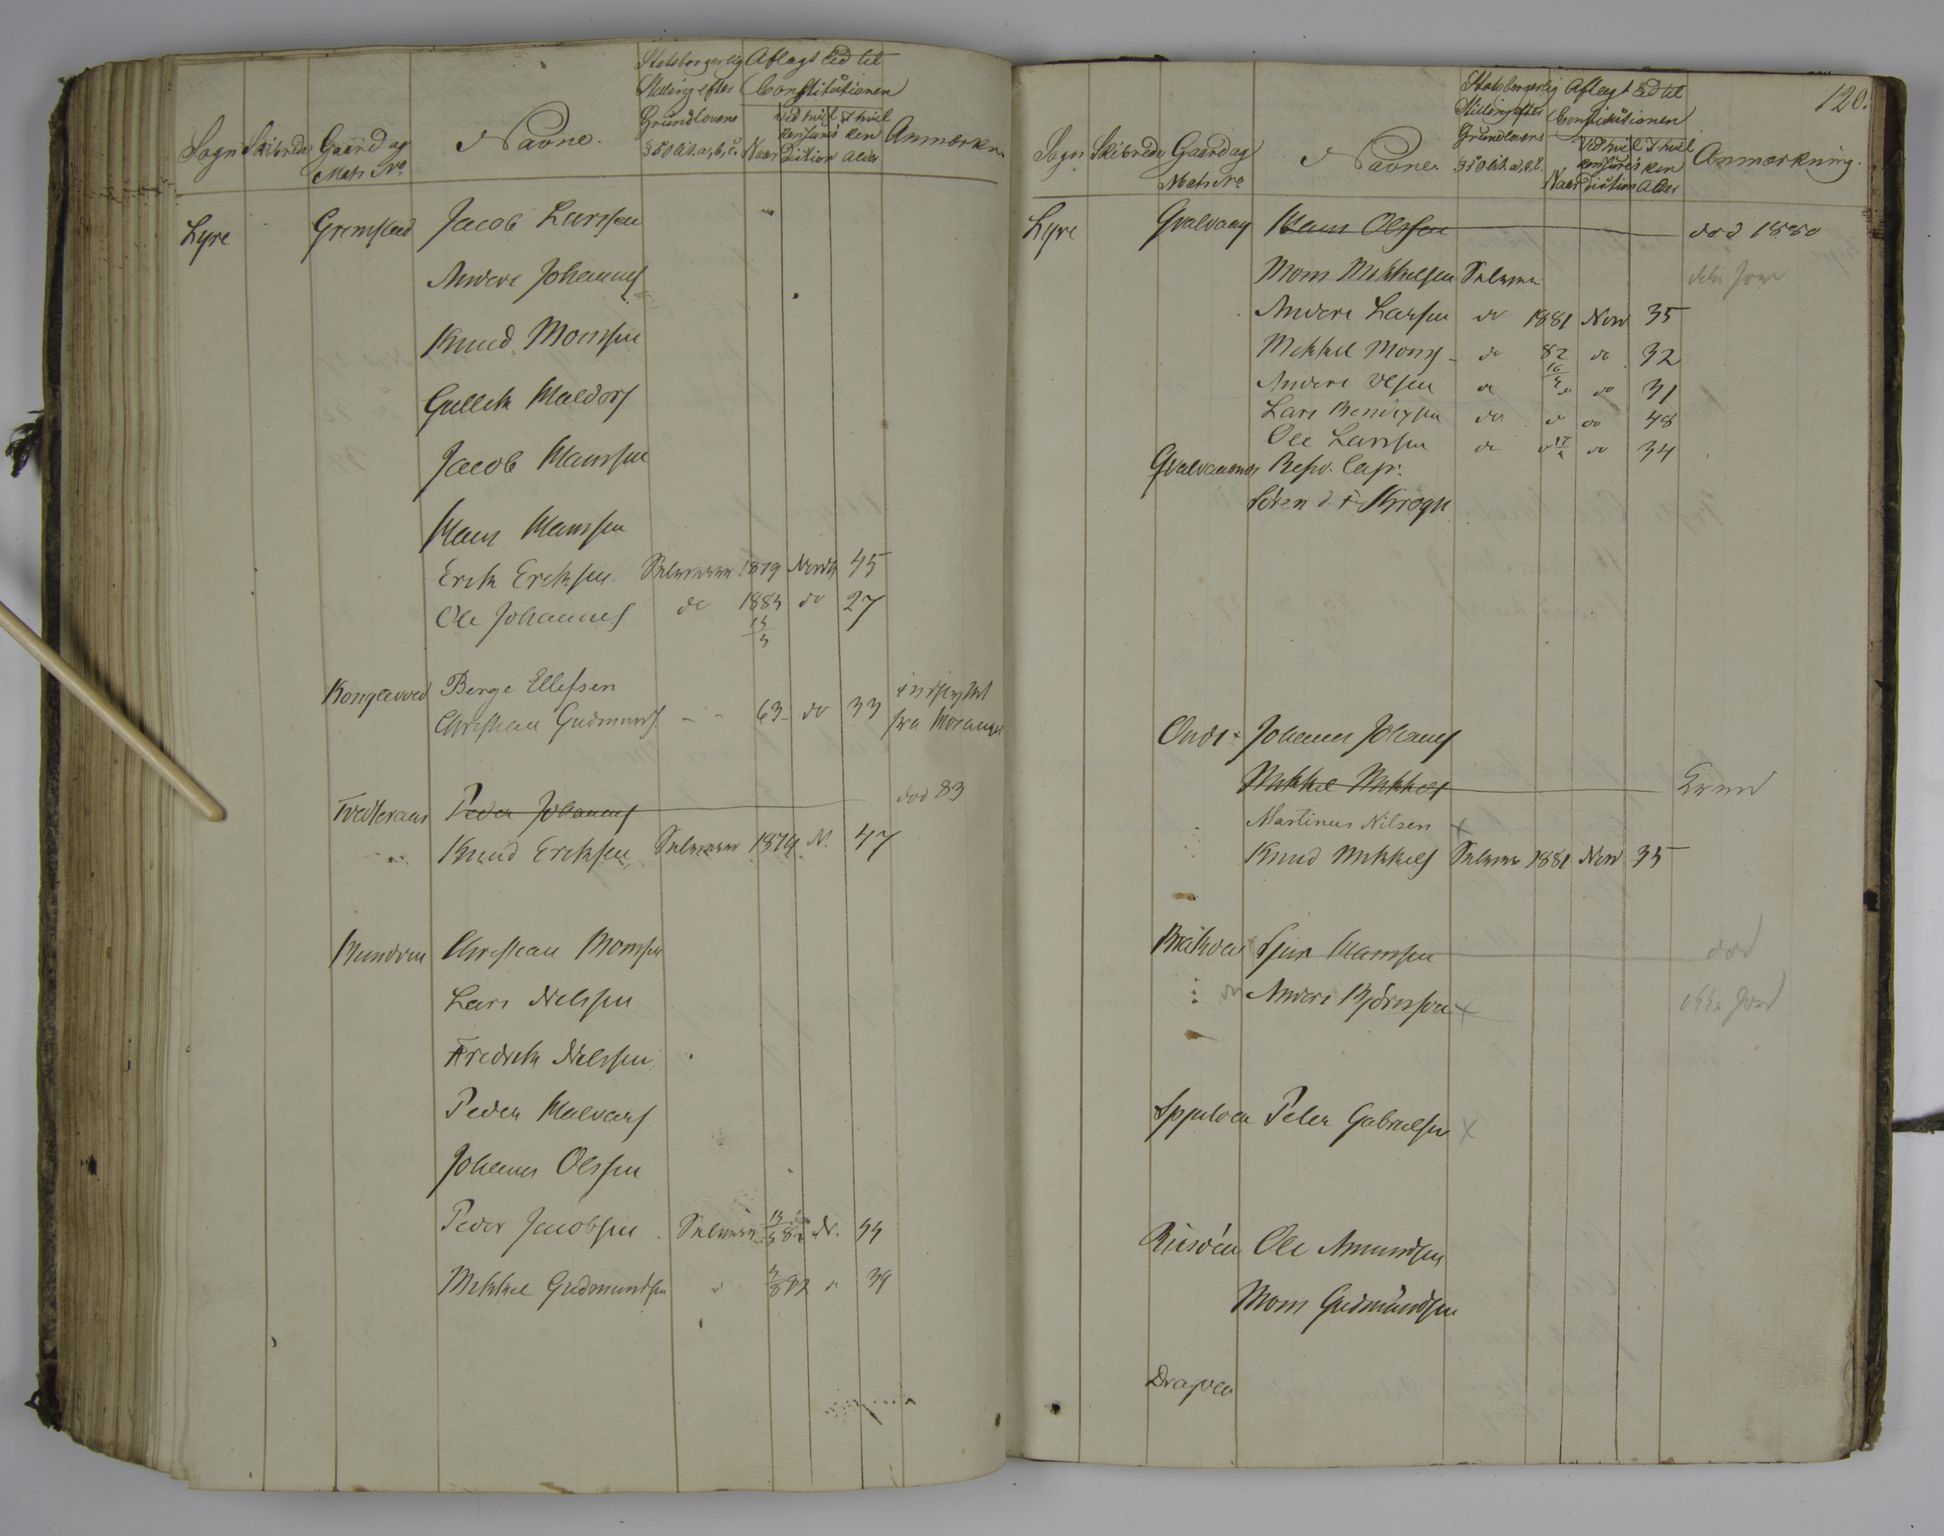 Sogn Skibrede Gaard og Mats No Navne. Statsborgerlig Stilling efter Grundlovens § 50 lit. a, b, c. Aflagt Eed til Constitutionen Naar Ved hvilken Juris diction I hvilken Alder Anmærkn
Lyre Gremstad Jacob Larssen
Anders Johannes
Knud Monssen
Gullik Haldors
Jacob Hanssen
Hans Hanssen
Erik Eriksen Selveier 1879 Nordh 45
Ole Johannes do 1883 13/3 do 27
Kongevoed Berge Ellefsen indflyttet
Christian Gudmunds - - 63 do 33 fra
Tvedteraas Peder Johannes død 83
Knud Eriksen Selveier 1879 N. 47
Christian Monssen
Lars Nilssen
Fredrik Nilssen
Peder Halvors
Johannes Olssen
Peder Jacobsen Selveier
Mikkel Gudmundsen 39
120.
Sogn Skibrede Gaard og Mats No Navne. Statsborgerlig Stilling efter Grundlovens § 50 lit. a, b, c. Aflagt Eed til Constitutionen Naar Ved hvilken Juris diction I hvilken Alder Anmærkning.
Lyre Qvalvaag Hans Olssen død 1880
Mons Mikkelsen Selveier
Anders Larsen do 1881 Nord 35
Mikkel Mons do 82 do 32
Anders Olsen do do 31
Lars do do 48
Ole Larssen do do 34
Qvalvaagnes
Søren Krogh
Johannes Johannes
Mikkel Mikkels
Martinus Nilsen x
Knud Mikkels Selveier 1881 Nord 35
Sjur Hanssen død
do Anders Bjørnsson x ikke Jord
Peter Gabrielsen x
Ole Amundsen
Mons Gudmundsen
Dragøen